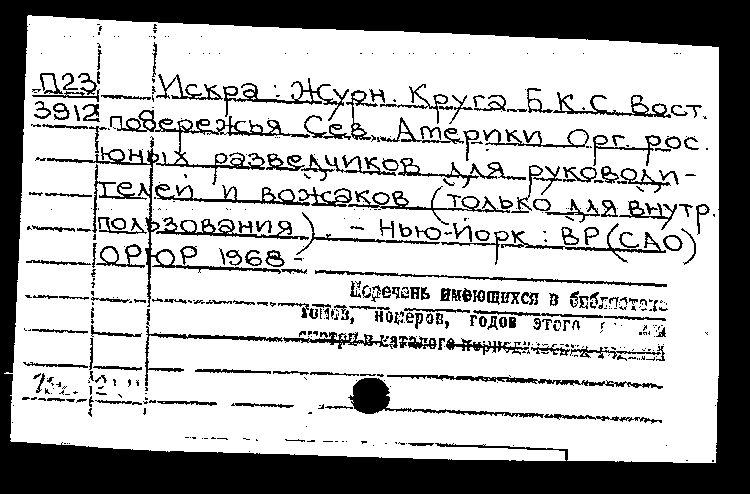 П23 Искра : Журн. Круга Б.К.С. Вост.
3912 побережья Сев. Америки Орг. рос.
юных разведчиков для руководи-
телей и вожаков (только для внутр.
пользования). - Нью-Йорк : ВР(САО)
ОРЮР 1968 -
Перечень имеющихся в библиотеке
томов, номеров, годов этого
смотри в каталоге периодических изданий